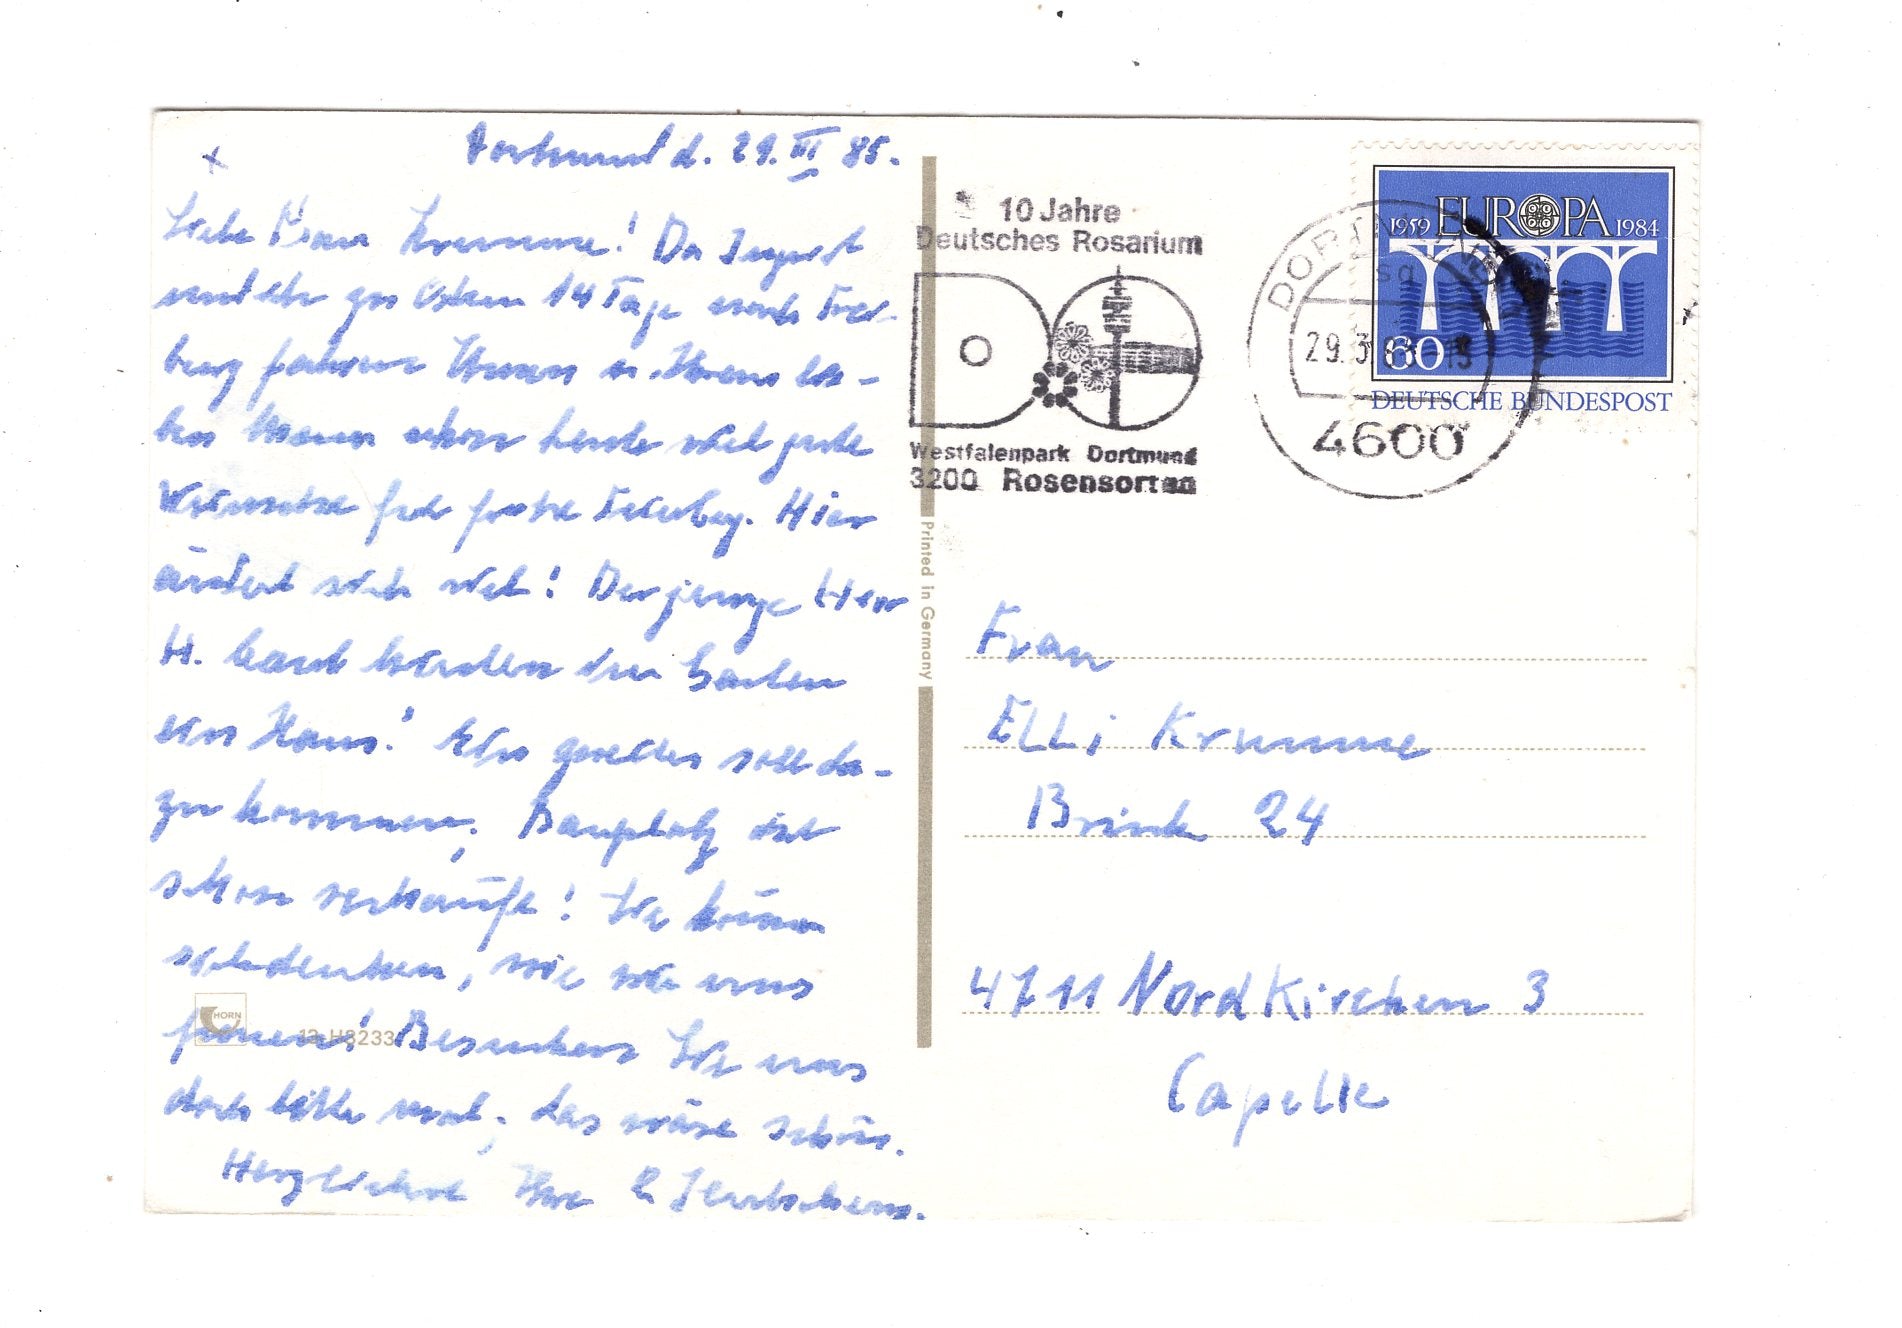 Dortmund d. 29. III 85.
Liebe Frau Krumme! Da Ingrid
und ich zu Ostern 14 Tage nach Frei-
burg fahren Ihnen u. Ihrem lie-
ben Mann schon heute viel gute
Wünsche für frohe Feiertag. Hier
ändert sich viel! Der junge Herr
H. baut hinten im Garten
ein Haus! soll da-
zu kommen, Bauplatz ist
schon verkauft! Sie können
sich denken, wie wir uns
freuen! Besuchen Sie uns
doch bitte mal, das wäre schön.
Herzlichst Ihre
10 Jahre
Deutsches Rosarium
Westfalenpark Dortmund
3200 Rosensorten
DORTMUND
29.3.85-15
4600
1959 EUROPA 1984
60
DEUTSCHE BUNDESPOST
Printed in Germany
Frau
Elli Krumme
Brink 24
4711 Nordkirchen 3
Capelle
HORN